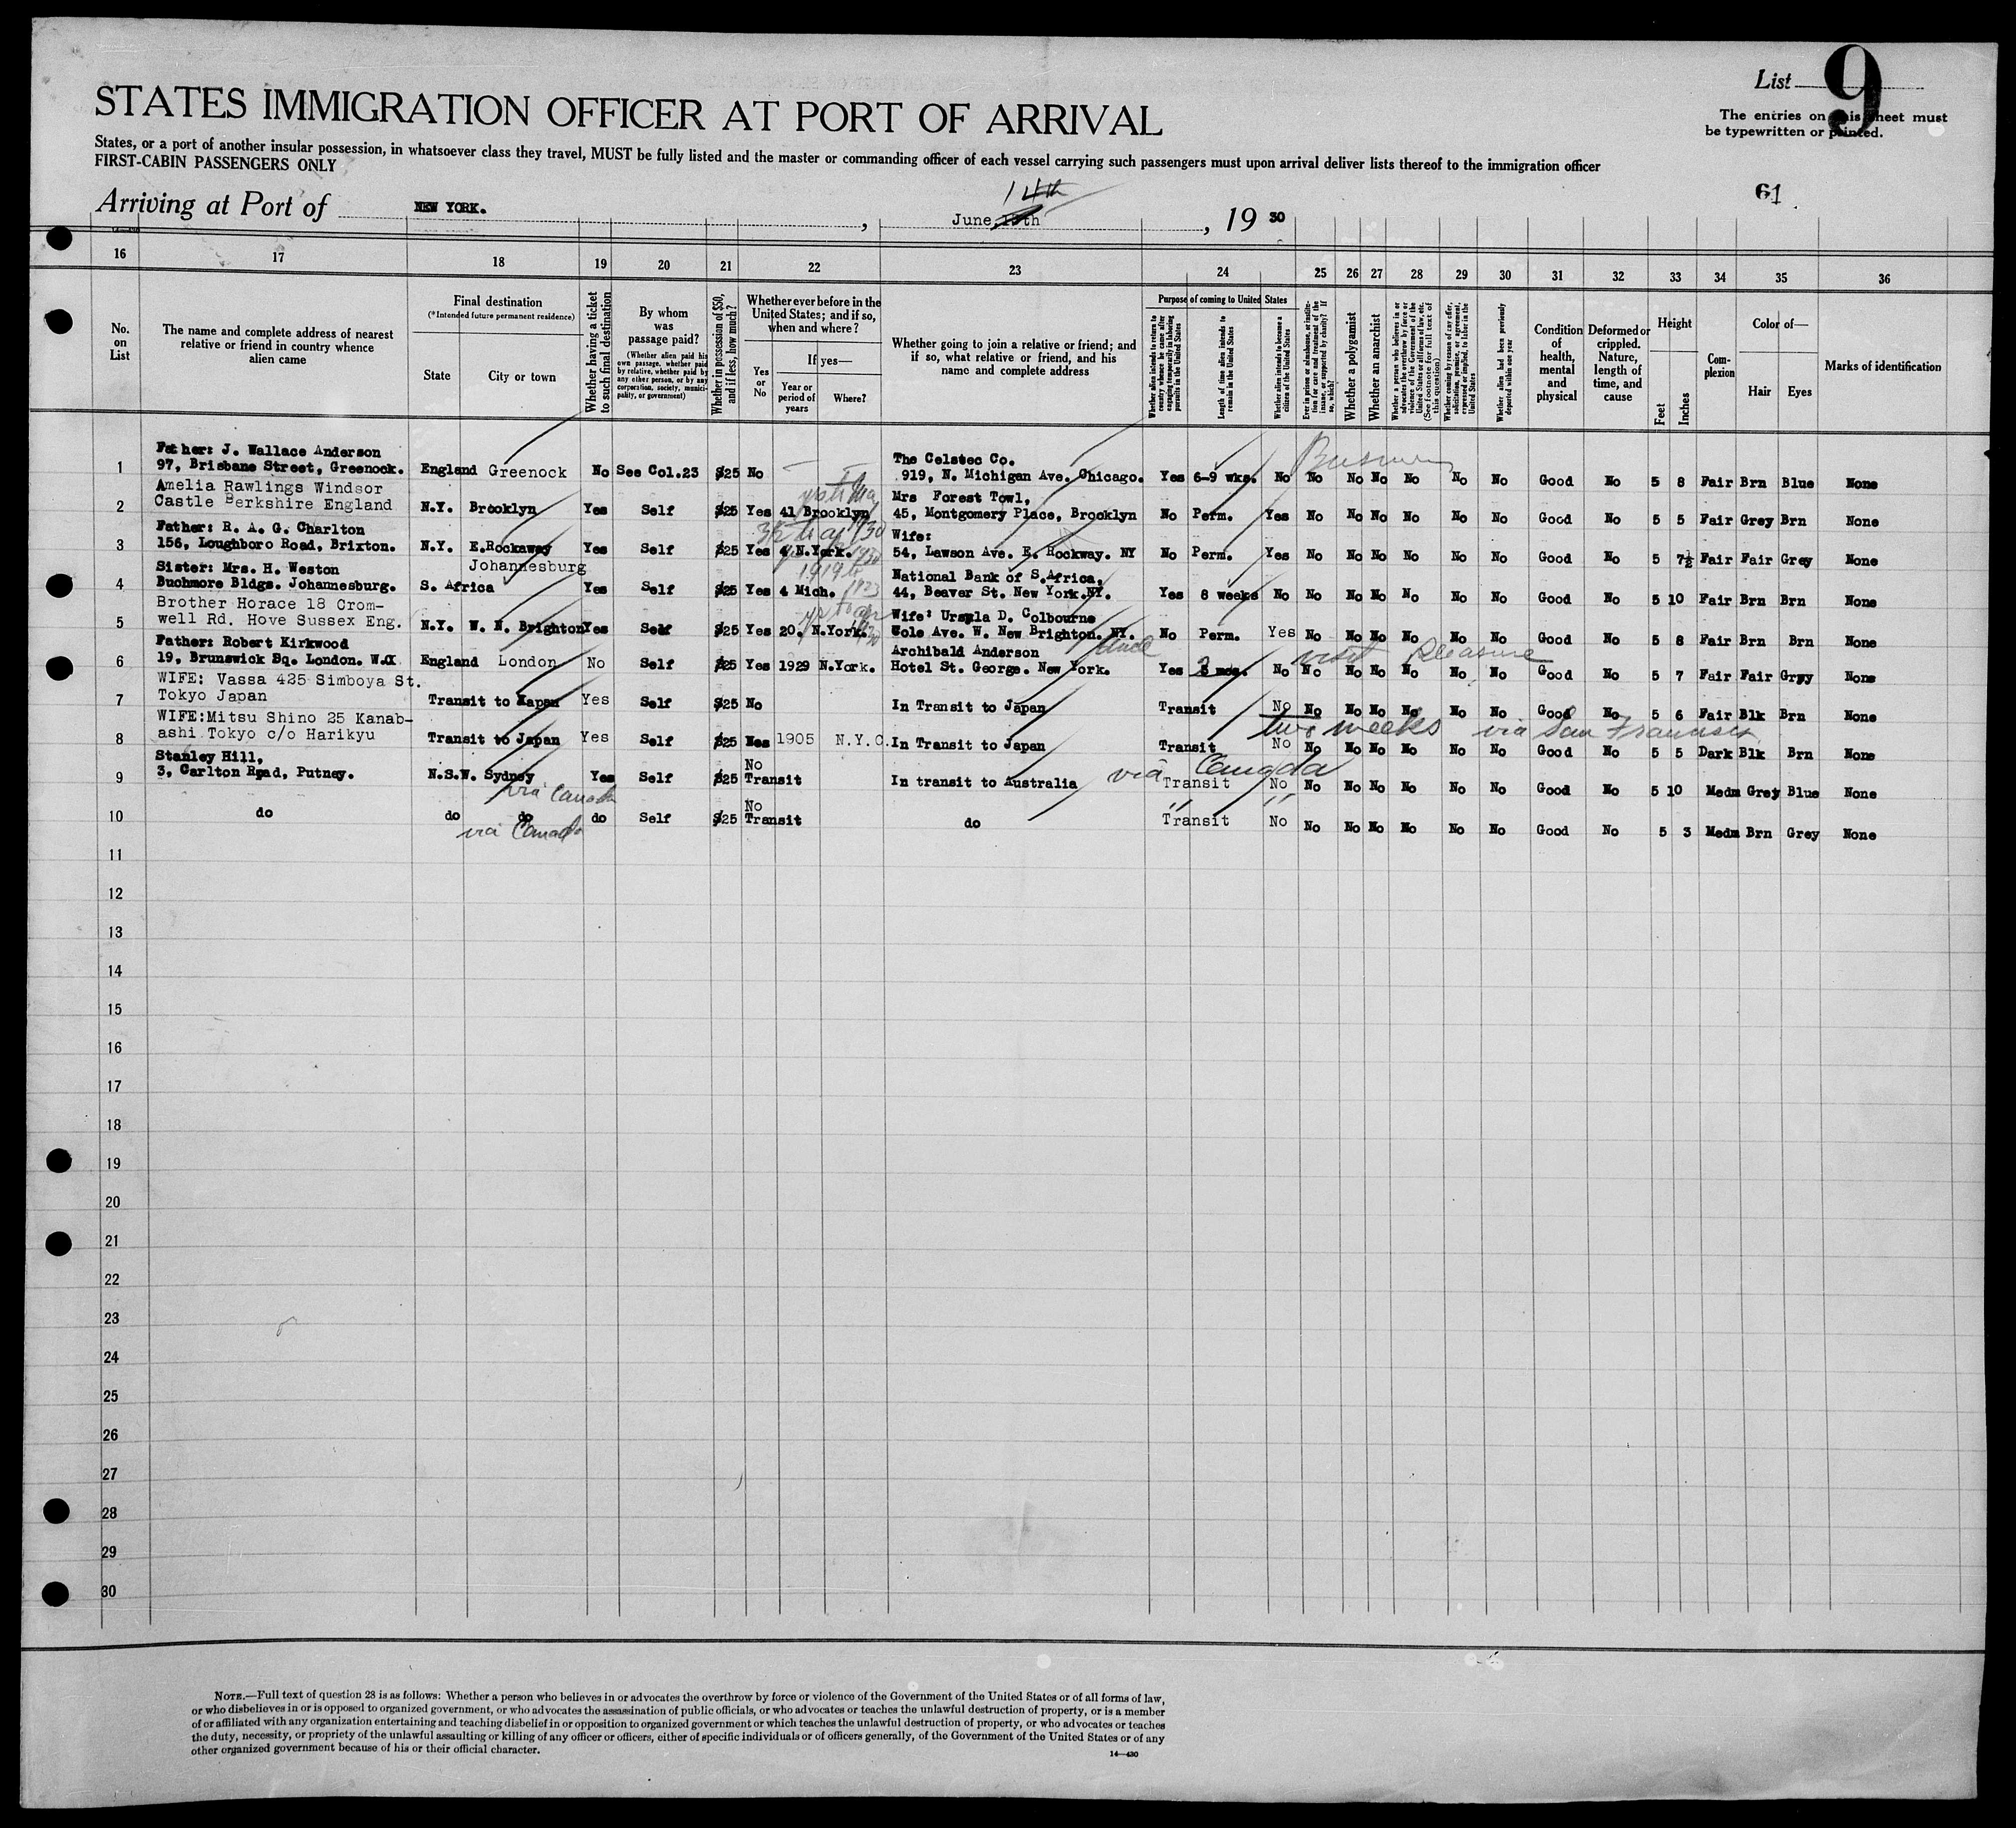 List 9
STATES IMMIGRATION OFFICER AT PORT OF ARRIVAL
The entries on this sheet must
be typewritten or printed.
States, or a port of another insular possession, in whatsoever class they travel, MUST be fully listed and the master or commanding officer of each vessel carrying such passengers must upon arrival deliver lists thereof to the immigration officer
FIRST-CABIN PASSENGERS ONLY
61
14th
Arriving at Port of NEW YORK. , June , 19 30
16 17 18 19 20 21 22 23 24 25 26 27 28 29 30 31 32 33 34 35 36
No. on List
The name and complete address of nearest relative or friend in country whence alien came
Final destination
(*Intended future permanent residence)
State
City or town
Whether having a ticket to such final destination
By whom was passage paid?
(Whether alien paid his own passage, whether paid by relative, whether paid by any other person, or by any corporation, society, municipality, or government)
Whether in possession of $50, and if less, how much?
Whether ever before in the United States; and if so, when and where?
Yes or No
If yes—
Year or period of years
Where?
Whether going to join a relative or friend; and if so, what relative or friend, and his name and complete address
Purpose of coming to United States
Whether alien intends to return to country whence he came after engaging temporarily in laboring pursuits in the United States
Length of time alien intends to remain in the United States
Whether alien intends to become a citizen of the United States
Ever in prison or almshouse, or institution for care and treatment of the insane, or supported by charity? If so, which?
Whether a polygamist
Whether an anarchist
Whether a person who believes in or advocates the overthrow by force or violence of the Government of the United States or all forms of law, etc. (See footnote for full text of this question)
Whether coming by reason of any offer, solicitation, promise, or agreement, expressed or implied, to labor in the United States
Whether alien had been previously deported within one year
Condition of health, mental and physical
Deformed or crippled. Nature, length of time, and cause
Height
Feet
Inches
Complexion
Color of—
Hair
Eyes
Marks of identification
Father: J. Wallace Anderson The Celstec Co. Business
1 97, Brisbane Street, Greenock. England Greenock No See Col.23 $25 No 919, N. Michigan Ave. Chicago. Yes 6-9 wks. No No No No No No No Good No 5 8 Fair Brn Blue None
Amelia Rawlings Windsor Mrs Forest Towl,
2 Castle Berkshire England N.Y. Brooklyn Yes Self $25 Yes 41 Brooklyn 45, Montgomery Place, Brooklyn No Perm. Yes No No No No No No Good No 5 5 Fair Grey Brn None
Father: R. A. G. Charlton 1930 Wife:
3 156, Loughboro Road, Brixton. N.Y. E.Rockaway Yes Self $25 Yes 4 N.York. 54, Lawson Ave. E. Rockway. NY No Perm. Yes No No No No No No Good No 5 7½ Fair Fair Grey None
Sister: Mrs. H. Weston Johannesburg 1919 National Bank of S.Africa,
4 Buchmore Bldgs. Johannesburg. S. Africa Yes Self $25 Yes 4 Mich. 1923 44, Beaver St. New York.NY. Yes 8 weeks No No No No No No No Good No 5 10 Fair Brn Brn None
Brother Horace 18 Crom- Wife: Ursula D. Colbourne
5 well Rd. Hove Sussex Eng. N.Y. W. N. Brighton Yes Self $25 Yes 20. N.York. Cole Ave. W. New Brighton. NY. No Perm. Yes No No No No No No Good No 5 8 Fair Brn Brn None
Father: Robert Kirkwood Archibald Anderson Uncle visit Pleasure
6 19, Brunswick Sq. London. England London No Self $25 Yes 1929 N.York. Hotel St. George. New York. Yes mos. No No No No No No No Good No 5 7 Fair Fair Grey None
WIFE: Vassa 425 Simboya St.
7 Tokyo Japan Transit to Japan Yes Self $25 No In Transit to Japan Transit No No No No No No No Good No 5 6 Fair Blk Brn None
WIFE:Mitsu Shino 25 Kanab- two weeks via San Francisco
8 ashi Tokyo c/o Harikyu Transit to Japan Yes Self $25 Yes 1905 N.Y.C. In Transit to Japan Transit No No No No No No No Good No 5 5 Dark Blk Brn None
Stanley Hill, No via Canada
9 3, Carlton Road, Putney. N.S.W. Sydney Yes Self $25 Transit In transit to Australia Transit No No No No No No No Good No 5 10 Medm Grey Blue None
via Canada No " "
10 do do do do Self $25 Transit do Transit No No No No No No No Good No 5 3 Medm Brn Grey None
via Canada
11
12
13
14
15
16
17
18
19
20
21
22
23
24
25
26
27
28
29
30
NOTE.—Full text of question 28 is as follows: Whether a person who believes in or advocates the overthrow by force or violence of the Government of the United States or of all forms of law,
or who disbelieves in or is opposed to organized government, or who advocates the assassination of public officials, or who advocates or teaches the unlawful destruction of property, or is a member
of or affiliated with any organization entertaining and teaching disbelief in or opposition to organized government or which teaches the unlawful destruction of property, or who advocates or teaches
the duty, necessity, or propriety of the unlawful assaulting or killing of any officer or officers, either of specific individuals or of officers generally, of the Government of the United States or of any
other organized government because of his or their official character.
14—430